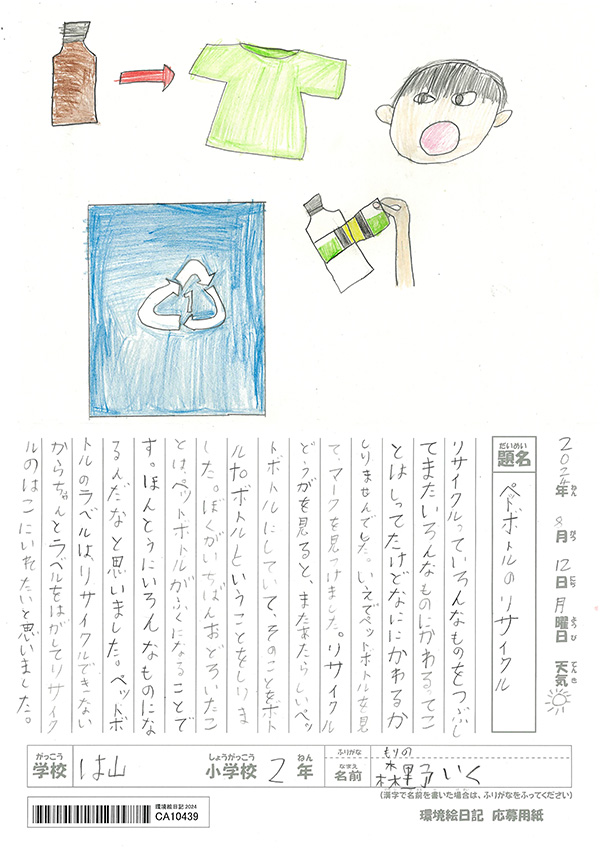 1
2024年 8月 12日 月曜日 天気
ねん がつ にち ようび てんき
だいめい
題名
ペットボトルのリサイクル
リサイクルっていろんなものをつぶし
てまたいろんなものにかわるってこ
とはしってたけどなににかわるか
しりませんでした。いえでペットボトルを見
て、マークを見つけました。リサイクル
どうがを見ると、またあたらしいペッ
トボトルにしていて、そのことをボト
ルtoボトルということをしりま
した。ぼくがいちばんおどろいたこ
とは、ペットボトルがふくになることで
す。ほんとうにいろんなものにな
るんだなと思いました。ペットボ
トルのラベルは、リサイクルできない
からちゃんとラベルをはがしてリサイク
ルのはこにいれたいと思いました。
がっこう
学校
は山
しょうがっこう
小学校
2
ねん
年
ふりがな
もりの
なまえ
名前
森野いく
(漢字で名前を書いた場合は、ふりがなをふってください)
環境絵日記2024
CA10439
環境絵日記 応募用紙